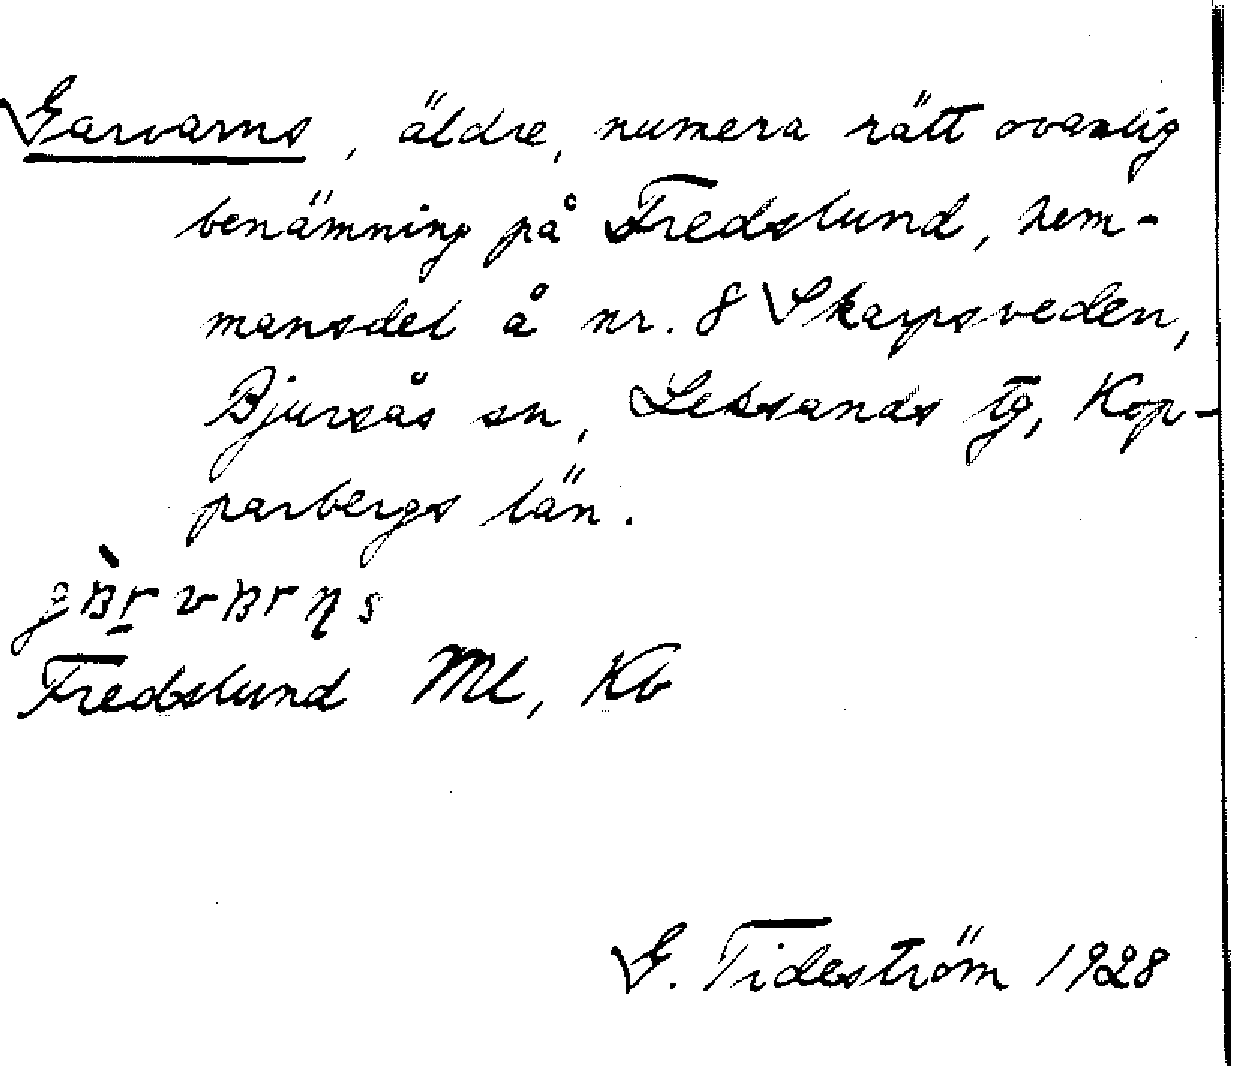 Garvarns, äldre, numera rätt ovanlig
benämning på Fredslund, hem-
mansdel å nr. 8 Skarpsveden,
Bjursås sn, Leksands tg, Kop-
parbergs län.
Fredslund Ml, Kb
G. Tideström 1928